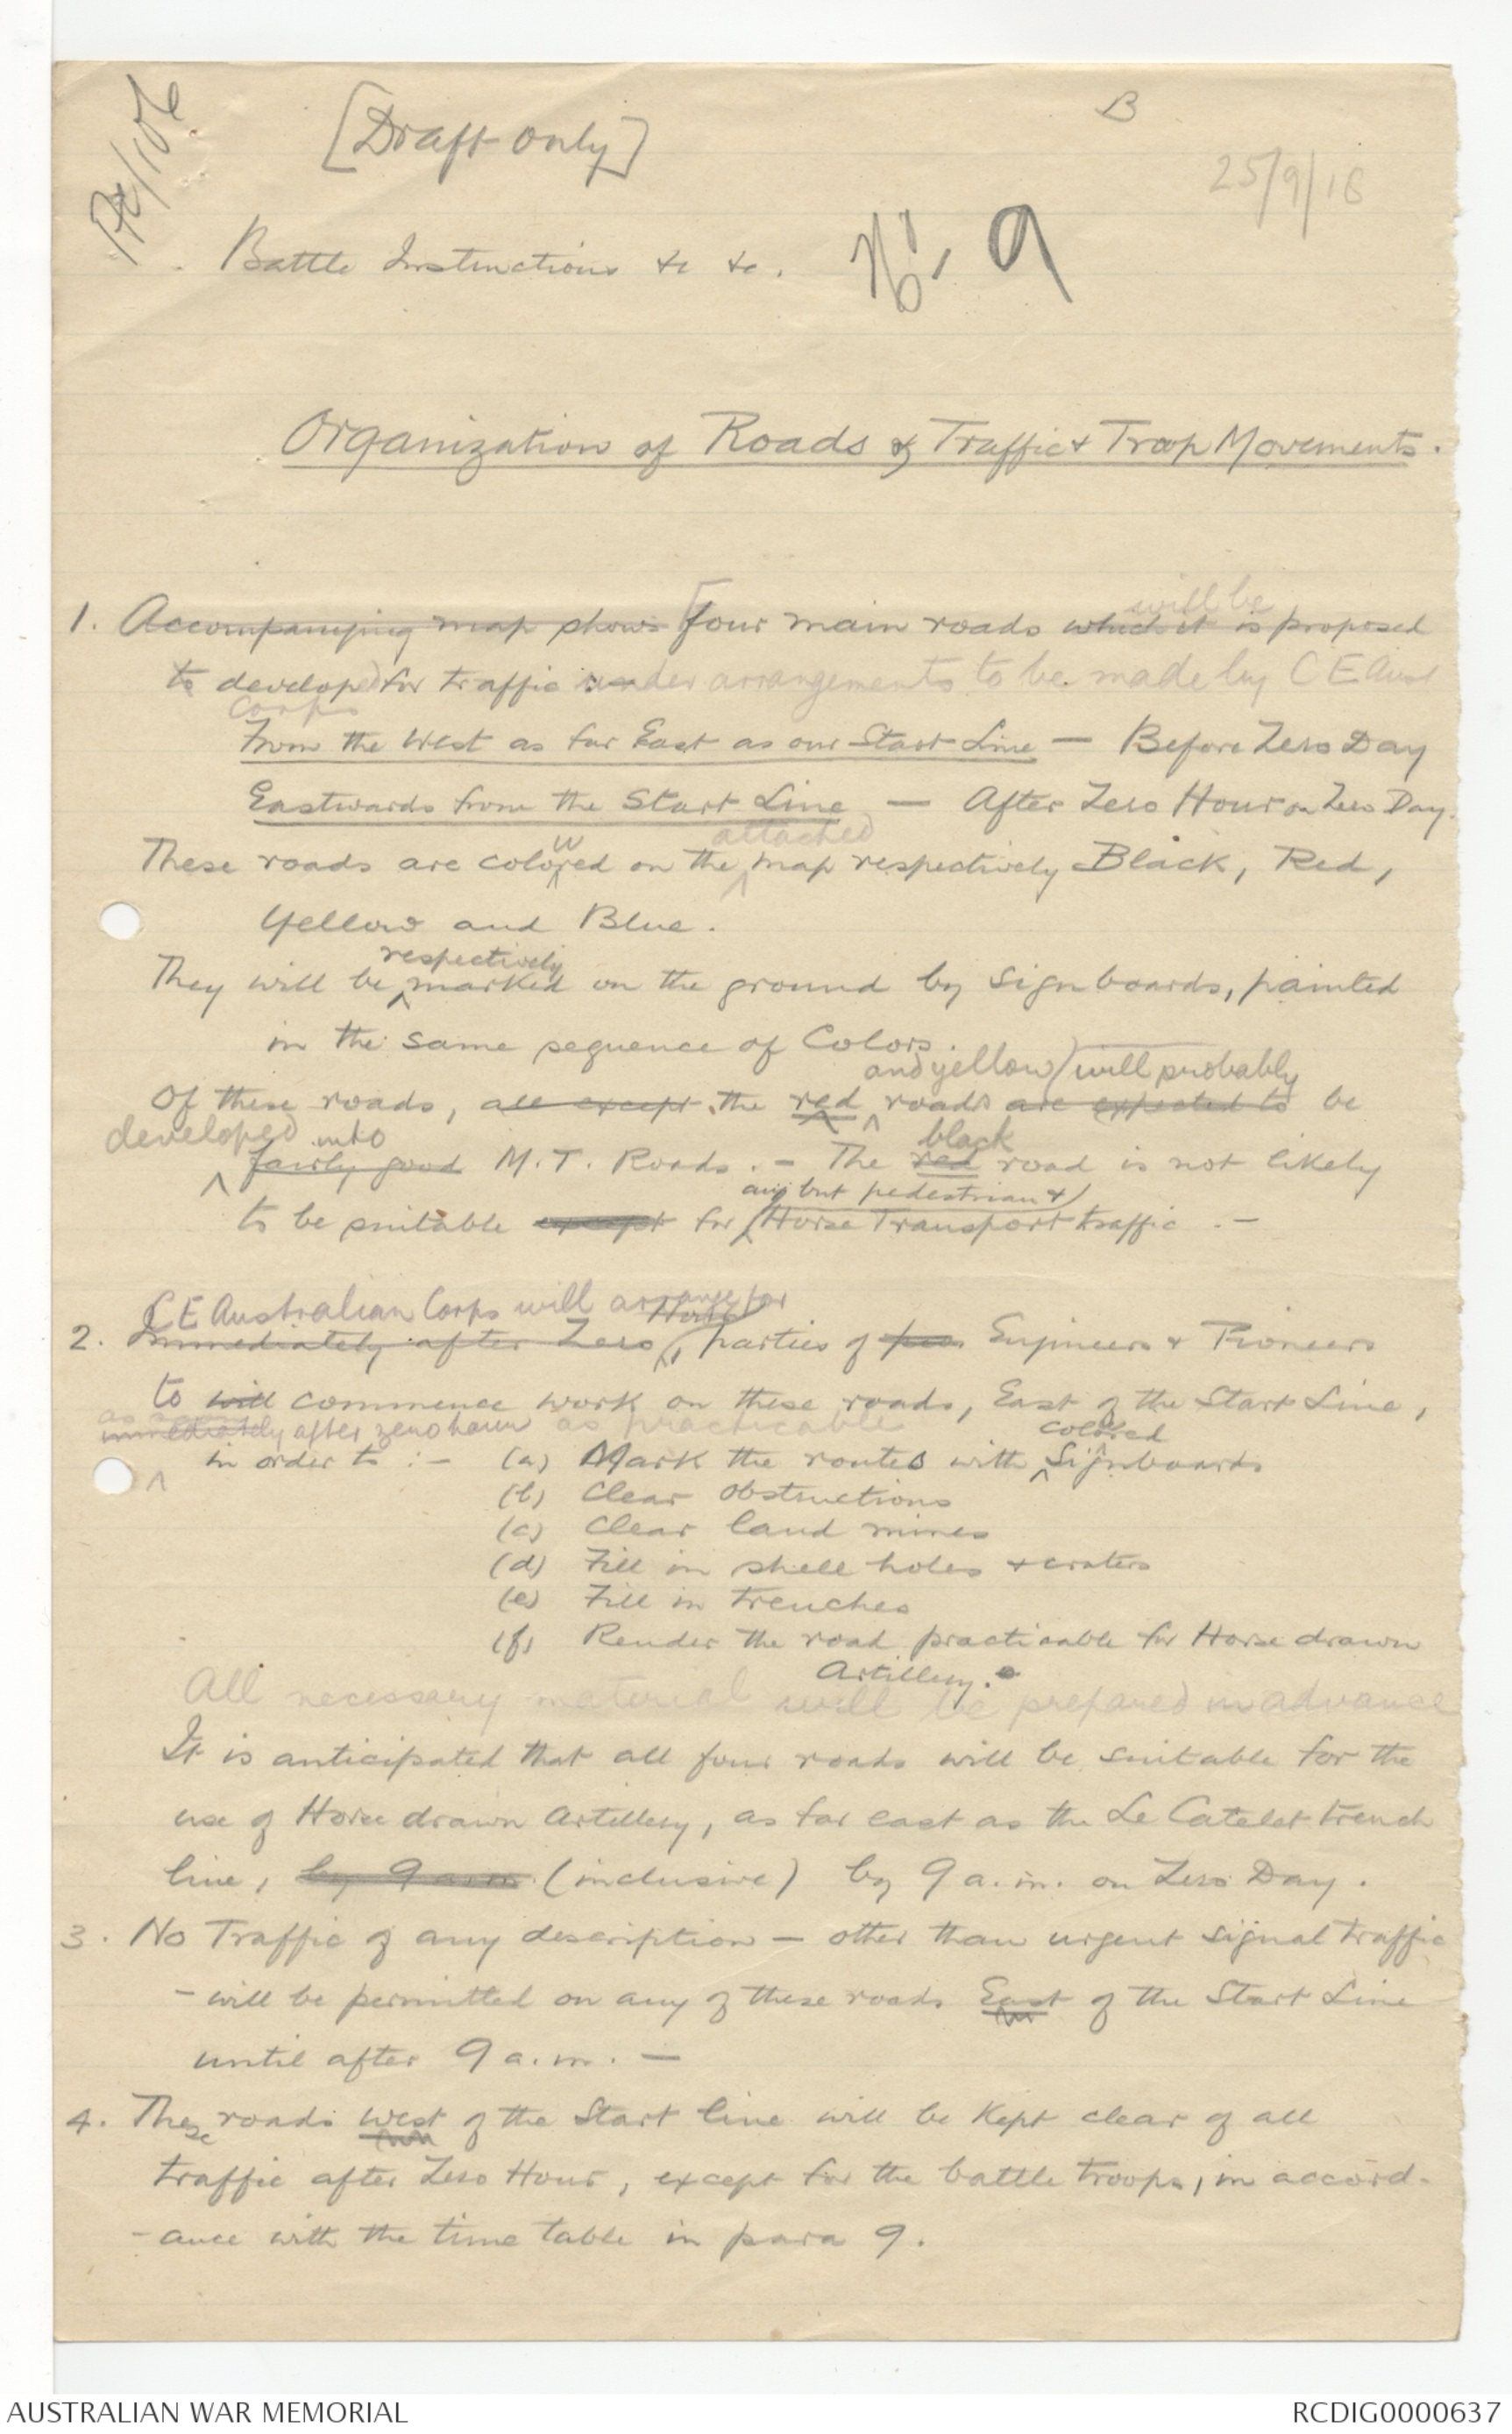 [Draft only]
B
25/9/18
Battle Instructions &c &c.
No. 9
Organization of Roads & Traffic & Troop Movements.
1. Accompanying map shows [four main roads which it is proposed
will be
to developed for traffic under arrangements to be made by C E Aust
Corps
From the West as far East as our Start Line — Before Zero Day
Eastwards from the Start Line — After Zero Hour on Zero Day.
attached
These roads are coloured on the map respectively Black, Red,
Yellow and Blue.
respectively
They will be marked on the ground by signboards, painted
in the same sequence of Colors.
and yellow) will probably
Of these roads, all except the red roads are expected to be
developed into black
fairly good M.T. Roads. – The red road is not likely
any but pedestrian &
to be suitable except for Horse Transport traffic. –
C E Australian Corps will arrange for
2. Immediately after Zero Hour, parties of Engineers & Pioneers
to will commence work on these roads, East of the Start Line,
immediately after zero hour as practicable
coloured
in order to :– (a) Mark the routes with Signboards
(b) Clear obstructions
(c) Clear land mines
(d) Fill in shell holes & craters
(e) Fill in trenches
(f) Render the road practicable for Horse drawn
Artillery.
All necessary material will be prepared in advance
It is anticipated that all four roads will be suitable for the
use of Horse drawn Artillery, as far east as the Le Catelet trench
line, by 9 a.m. (inclusive) by 9 a.m. on Zero Day.
3. No Traffic of any description – other than urgent signal traffic
– will be permitted on any of these roads East of the Start Line
until after 9 a.m. –
4. These roads West of the Start line will be kept clear of all
traffic after Zero Hour, except for the battle troops, in accord-
-ance with the time table in para 9.
AUSTRALIAN WAR MEMORIAL
RCDIG0000637